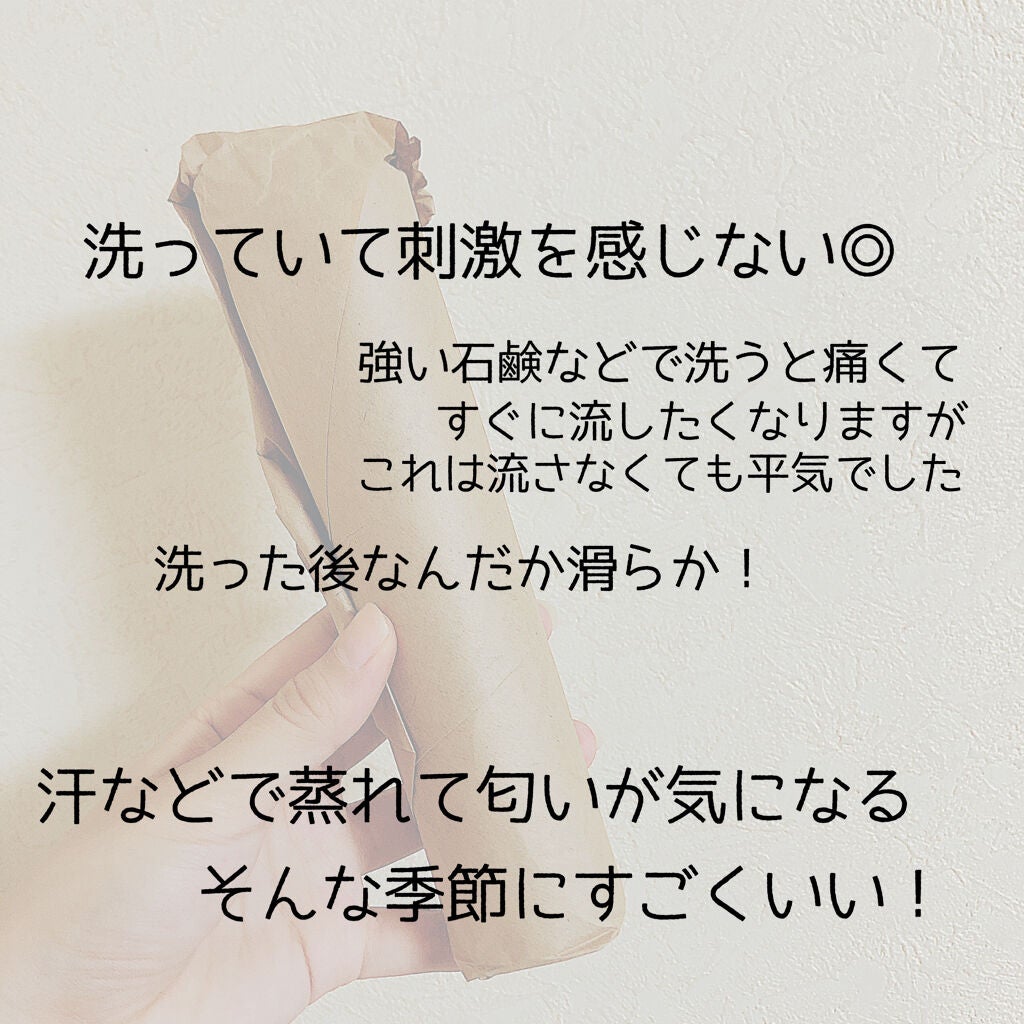 洗っていて刺激を感じない◎
強い石鹸などで洗うと痛くて
すぐに流したくなりますが
これは流さなくても平気でした
洗った後なんだか滑らか！
汗などで蒸れて匂いが気になる
そんな季節にすごくいい！